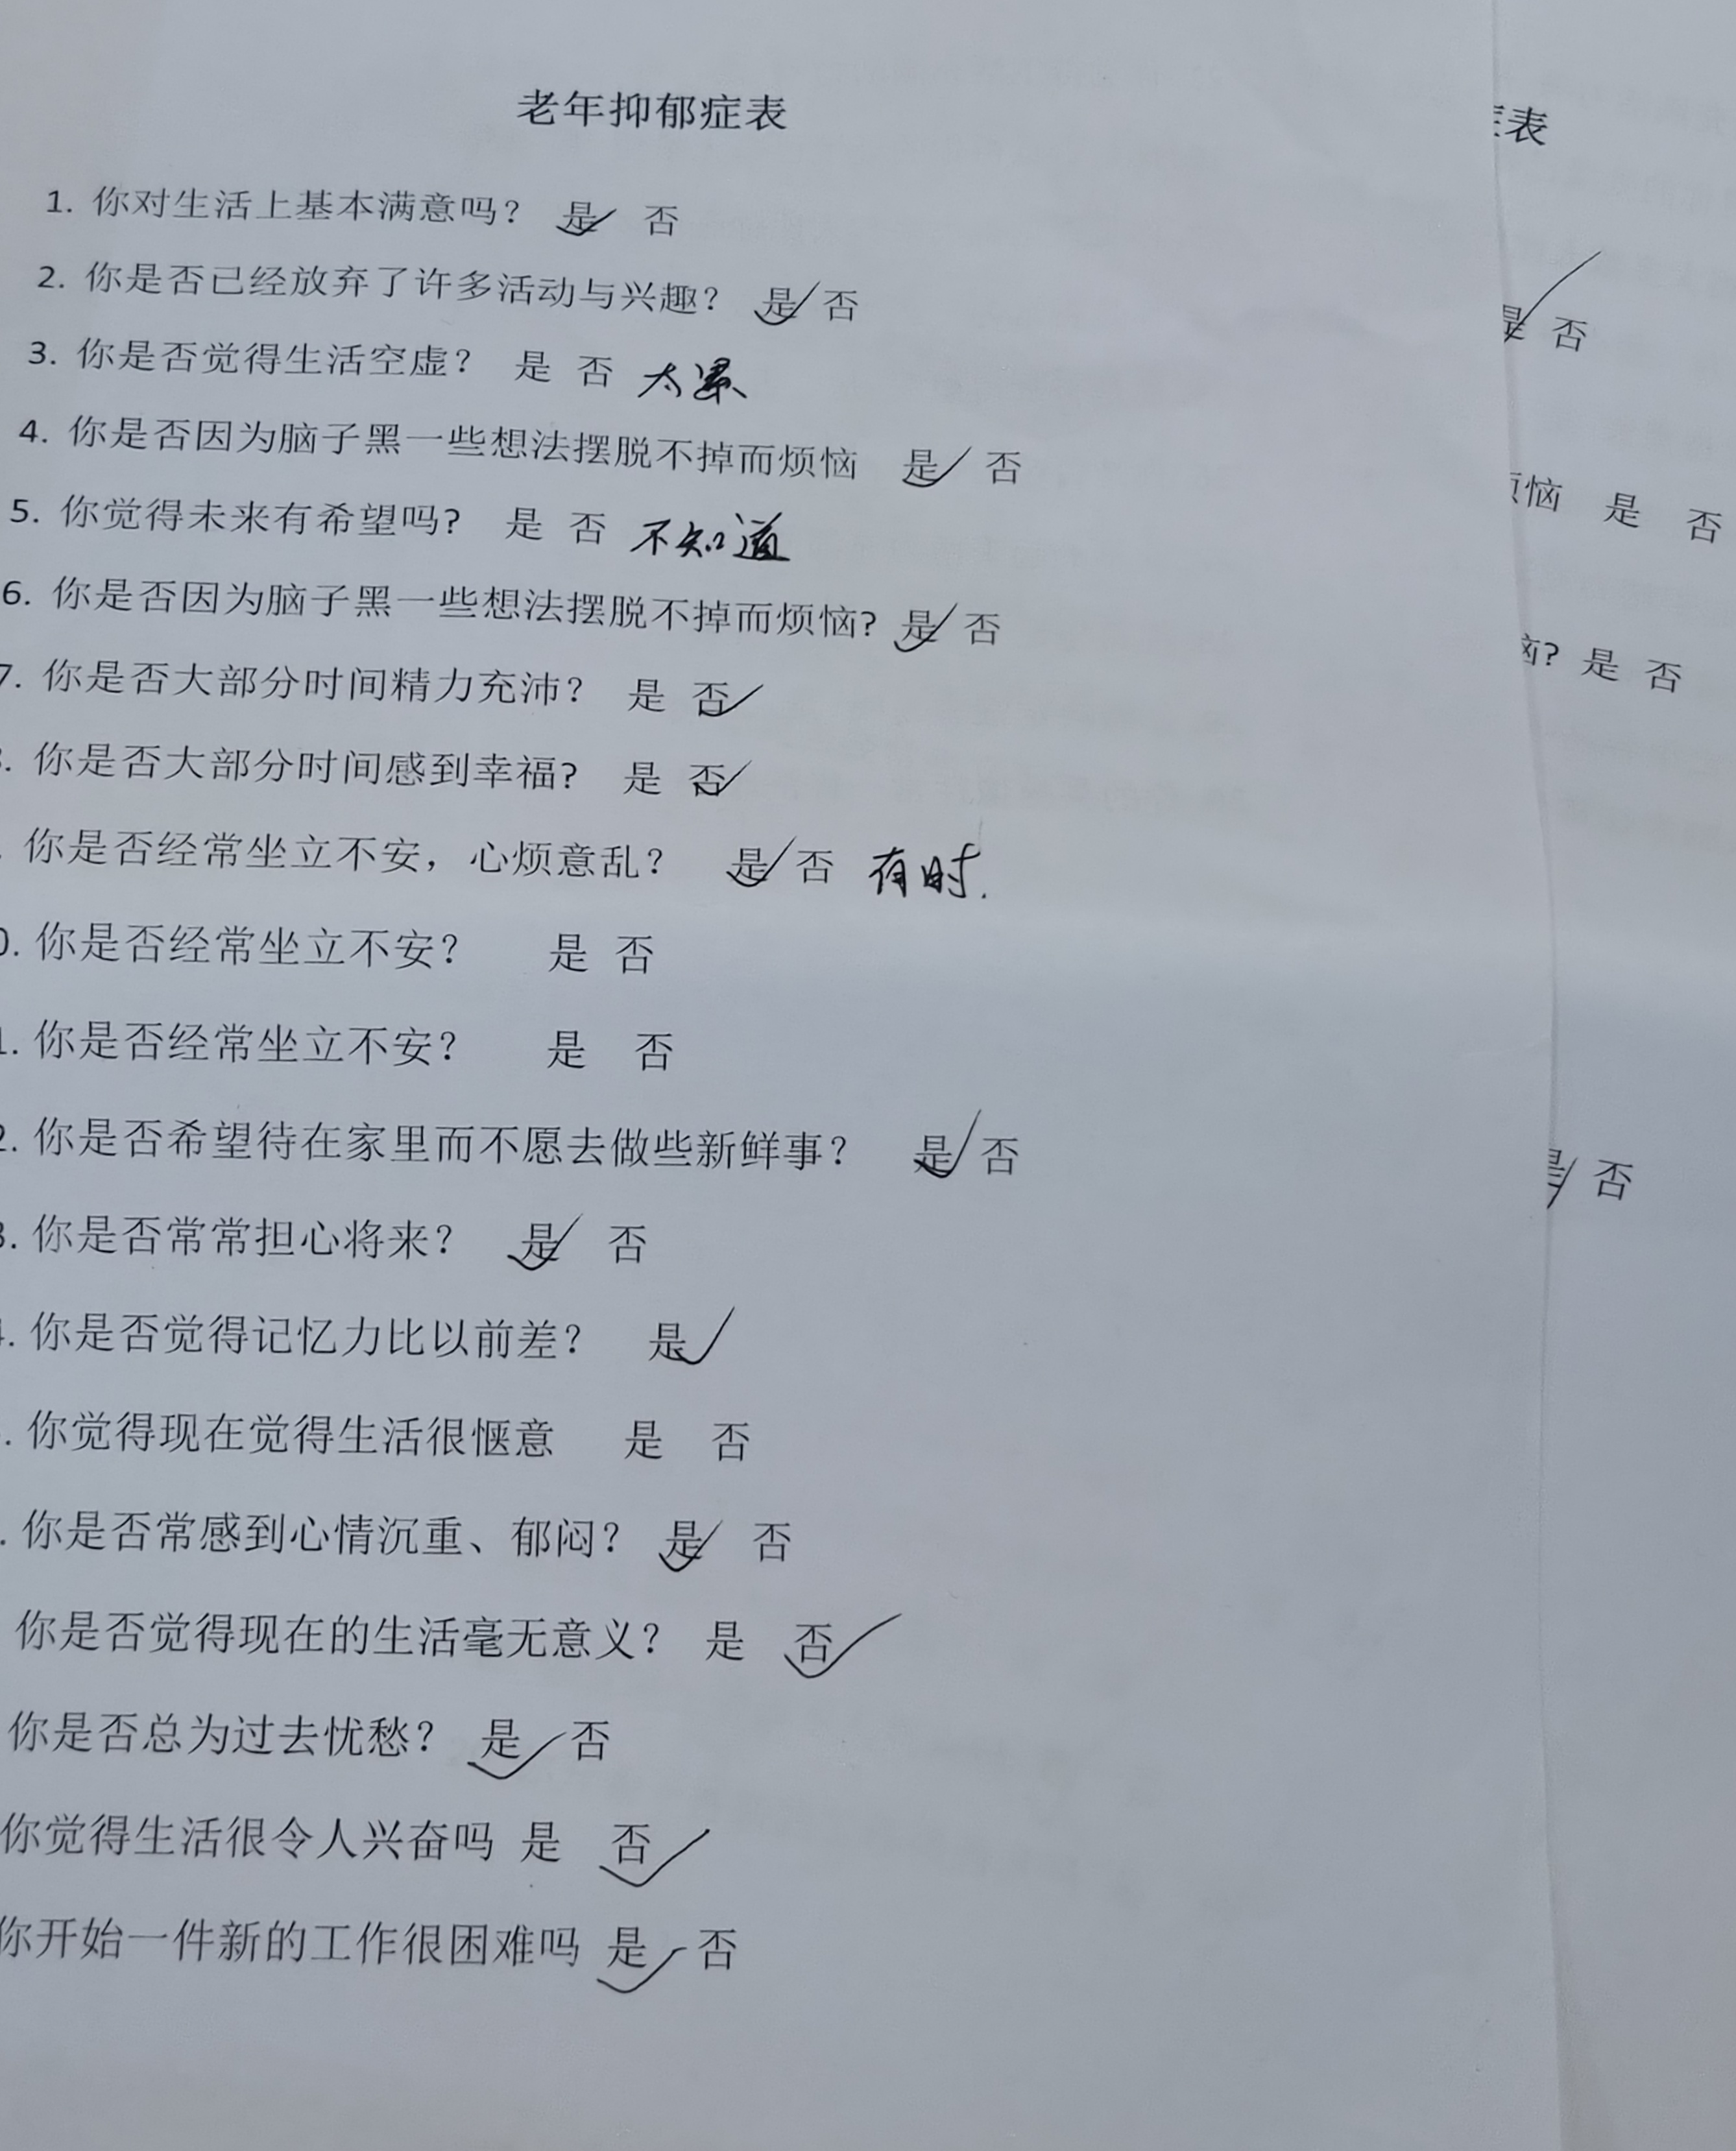 老年抑郁症表
1. 你对生活上基本满意吗？ 是 否
2. 你是否已经放弃了许多活动与兴趣？ 是 否
3. 你是否觉得生活空虚？ 是 否 太累
4. 你是否因为脑子黑一些想法摆脱不掉而烦恼 是 否
5. 你觉得未来有希望吗? 是 否 不知道
6. 你是否因为脑子黑一些想法摆脱不掉而烦恼? 是 否
7. 你是否大部分时间精力充沛？ 是 否
. 你是否大部分时间感到幸福? 是 否
. 你是否经常坐立不安，心烦意乱？ 是 否 有时.
0. 你是否经常坐立不安？ 是 否
1. 你是否经常坐立不安？ 是 否
2. 你是否希望待在家里而不愿去做些新鲜事？ 是 否
3. 你是否常常担心将来？ 是 否
. 你是否觉得记忆力比以前差？ 是
. 你觉得现在觉得生活很惬意 是 否
. 你是否常感到心情沉重、郁闷？ 是 否
你是否觉得现在的生活毫无意义？ 是 否
你是否总为过去忧愁？ 是 否
你觉得生活很令人兴奋吗 是 否
你开始一件新的工作很困难吗 是 否
表
是 否
恼 是 否
? 是 否
是 否